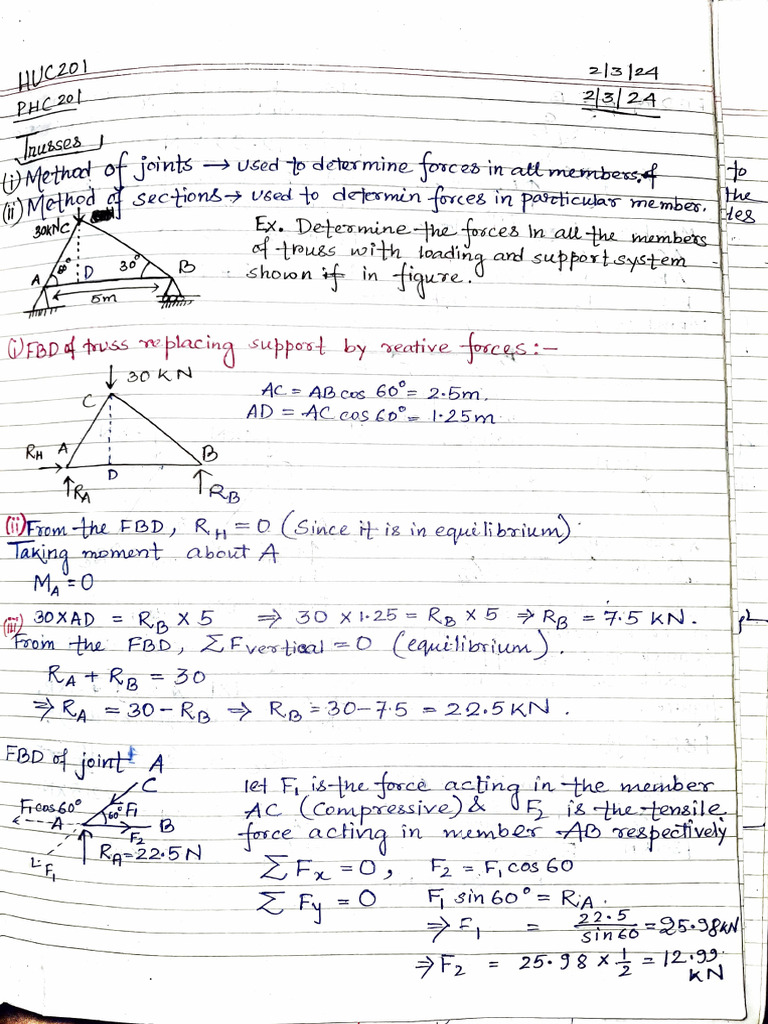 HUC201
2/3/24
PHC201
2/3/24
Trusses
(i) Method of joints → used to determine forces in all members.
(ii) Method of sections → used to determin forces in particular member.
to
the
les
30KN C
A 60° D 30° B
5m
Ex. Determine the forces in all the members
of truss with loading and support system
shown in figure.
(i) FBD of truss replacing support by reative forces:-
30 KN
C
RH A
B
D
RA
RB
AC = AB cos 60° = 2.5m.
AD = AC cos 60° = 1.25m
(ii) From the FBD, RH = 0 (Since it is in equilibrium)
Taking moment about A
MA = 0
(iii) 30 X AD = RB X 5 ⇒ 30 X 1.25 = RB X 5 ⇒ RB = 7.5 KN.
From the FBD, ΣFvertical = 0 (equilibrium).
RA + RB = 30
⇒ RA = 30 - RB ⇒ RB = 30 - 7.5 = 22.5 KN.
FBD of joint A
C
F1cos60° 60° F1
A F2 B
RA = 22.5 N
F1
let F1 is the force acting in the member
AC (compressive) & F2 is the tensile
force acting in member AB respectively
Σ Fx = 0, F2 = F1 cos 60
Σ Fy = 0 F1 sin 60° = RA.
⇒ F1 = 22.5/sin 60 = 25.98 kN
⇒ F2 = 25.98 × 1/2 = 12.99.
KN